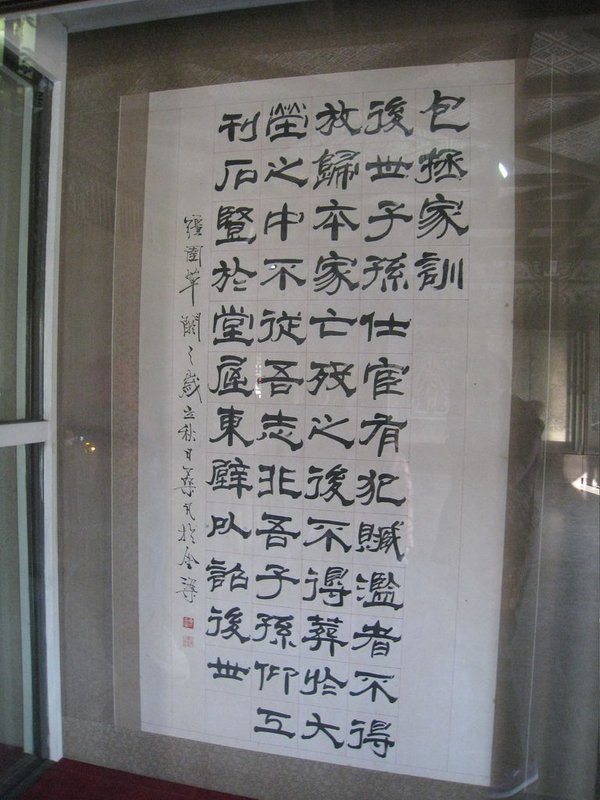 包拯家訓
後世子孫仕宦有犯贓濫者不得
放歸本家亡歿之後不得葬於大
塋之中不從吾志非吾子孫仰工
刊石豎於堂屋東壁以詔後世
強圉單閼之歲立秋日於金